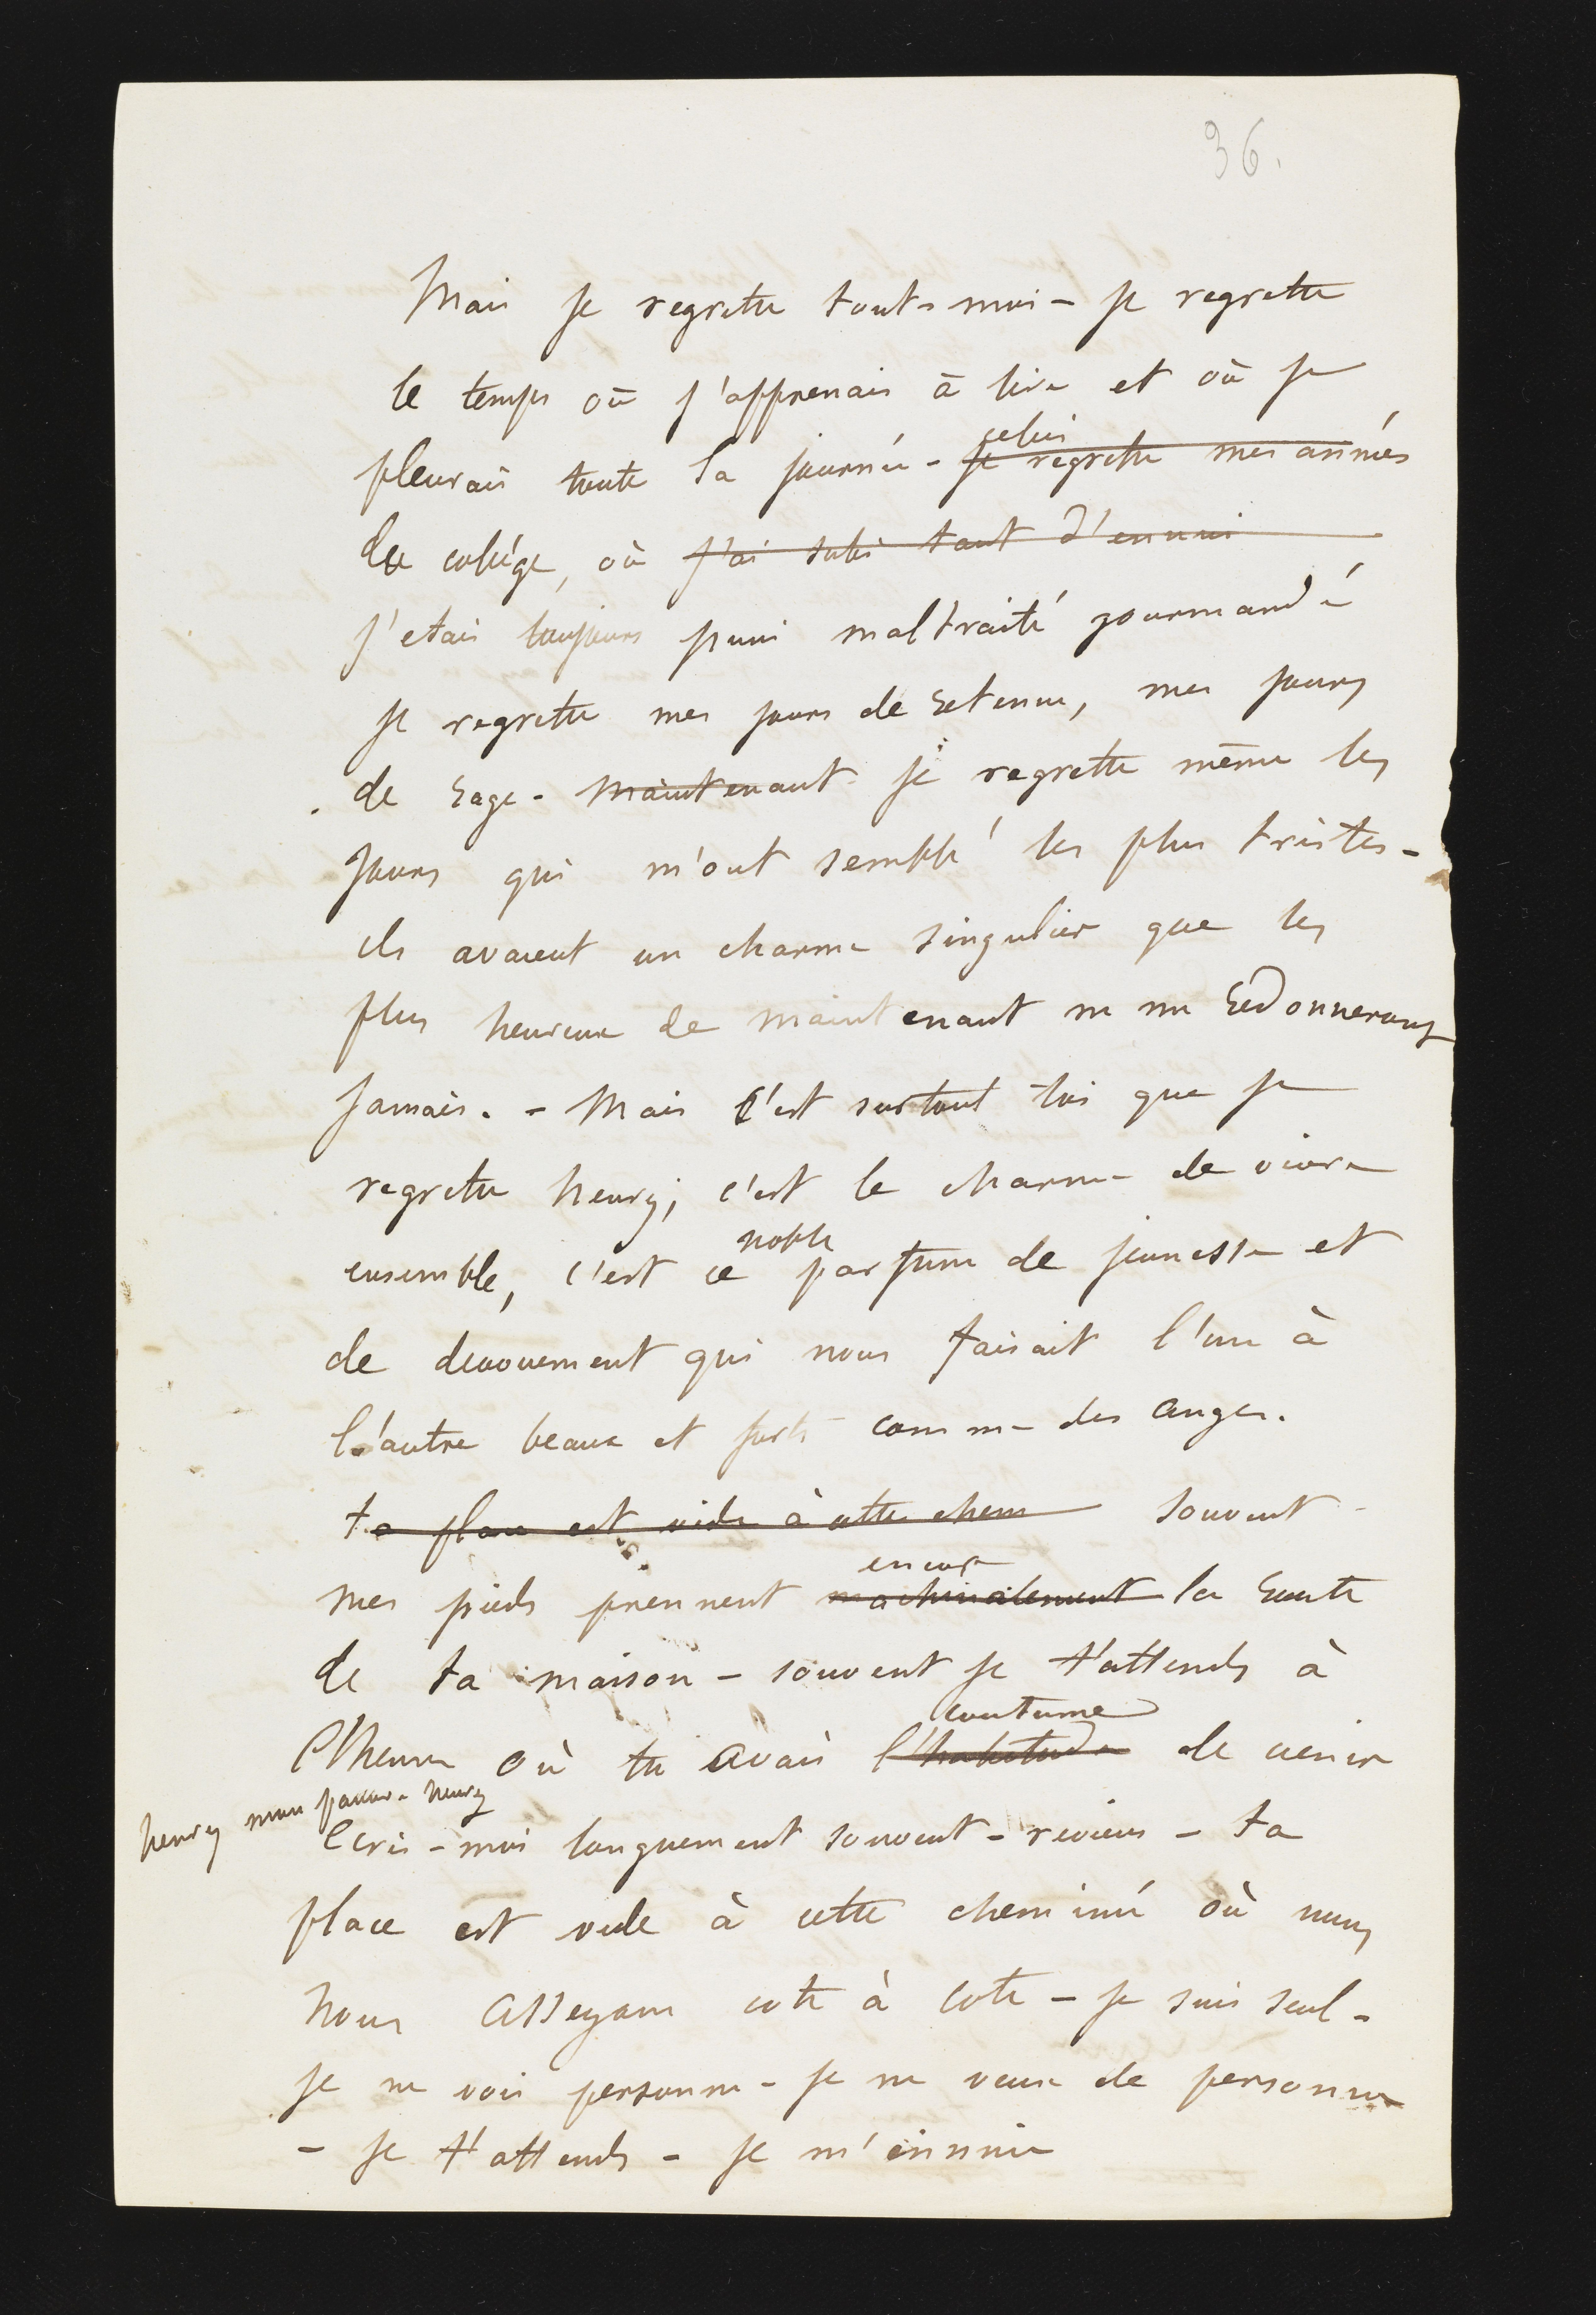 36.
Mais je regrette tout-moi - je regrette
le temps où j'apprenais à lire et où je
celui
pleurais toute la journée - je regrette mes années
de collége, où j'ai subi tant d'ennui
j'etais toujours puni maltraité gourmandé
je regrette mes jours de retenue, mes jours
de rage - maintenant je regrette même les
jours qui m'ont semblé les plus tristes -
ils avaient un charme singulier que les
plus heureux de maintenant ne me redonnerons
jamais. - Mais c'est surtout toi que je
regrette henry, c'est le charme de vivre
noble
ensemble, c'est ce parfum de jeunesse et
de devouement qui nous faisait l'un à
l'autre beaux et forts comme des anges.
ta place est vide à cette chem souvent -
encore
mes pieds prennent machinalement la route
de ta maison - souvent je t'attends à
coutume
l'heure où tu avais l'habitude de venir
henry mon pauvre henry
Ecris-moi longuement souvent - reviens - ta
place est vide à cette cheminé où nous
nous asseyons cote à cote - je suis seul -
je ne vois personne - je ne veux de personne
- je t'attends - je m'ennuie